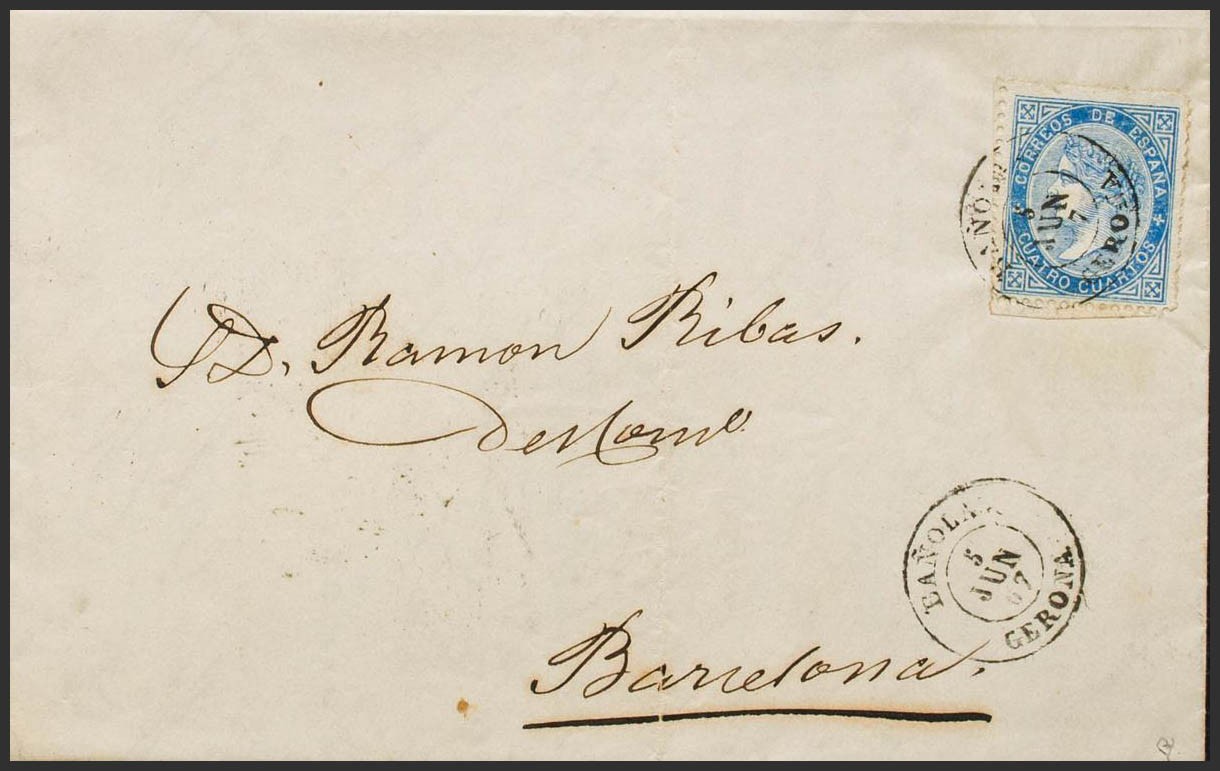 CORREOS DE ESPAÑA
CUATRO CUARTOS
5
JUN
7
GERONA
S.D. Ramon Ribas.
del Com.o
BAÑOLAS
5
JUN
67
GERONA
Barcelona.